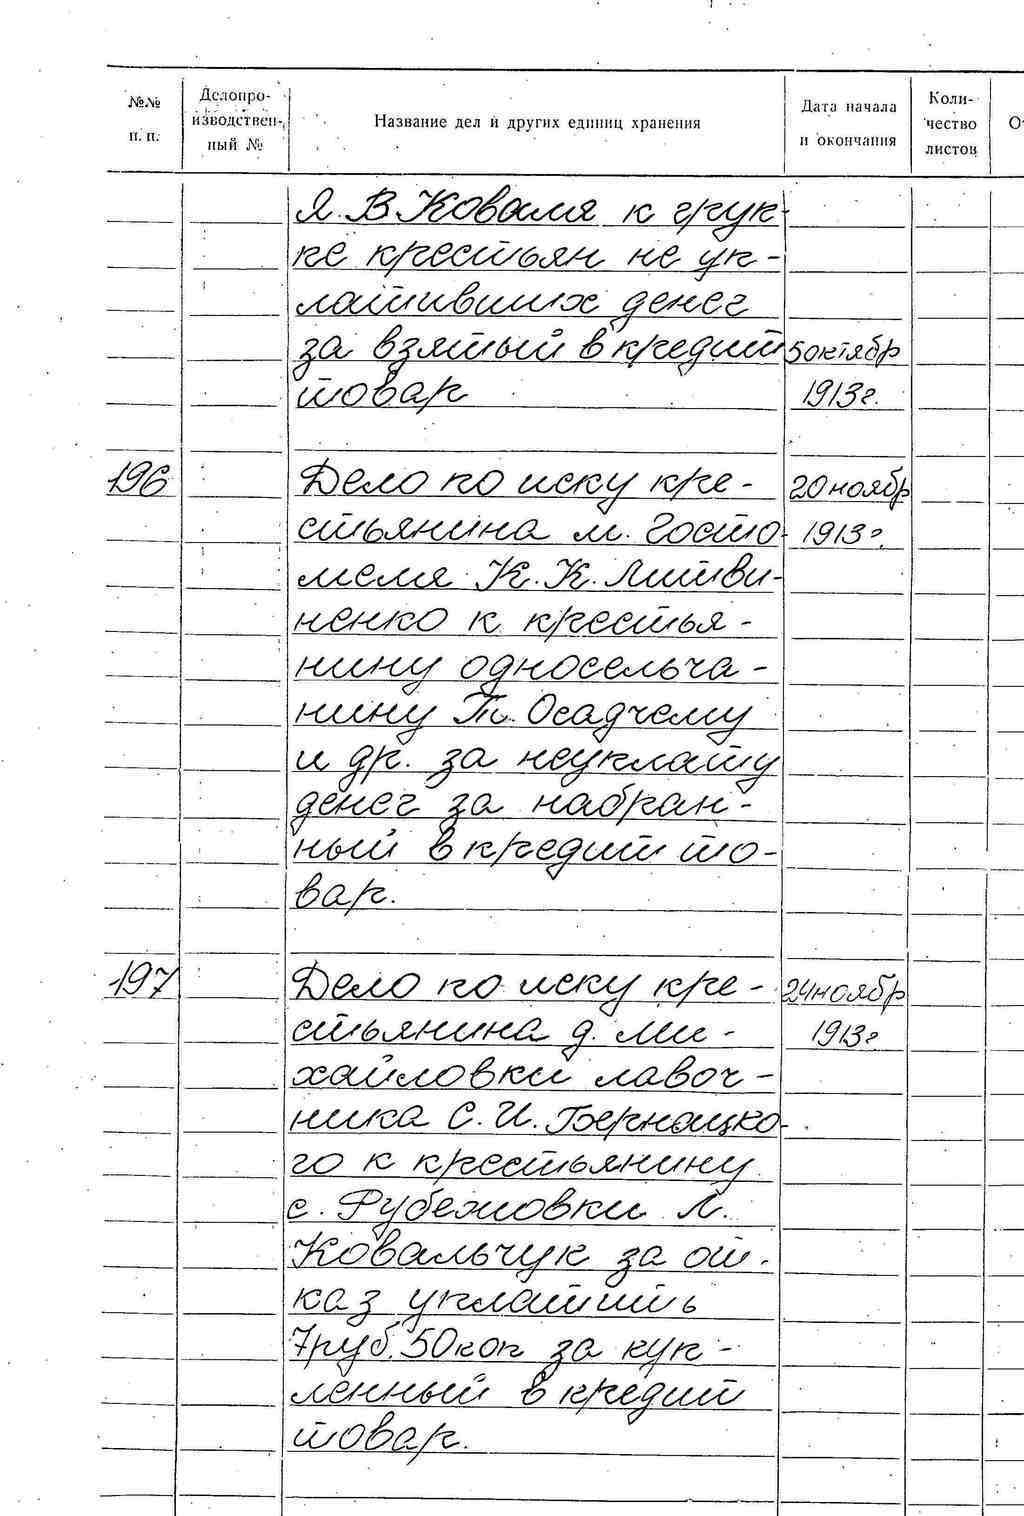 №№ п. п.
Делопроизводственный №
Название дел и других единиц хранения
Дата начала и окончания
Количество листов
Я. В. Коваля к груп-
пе крестьян не уп-
лативших денег
за взятый в кредит 5 октябр
товар 1913 г.
196 Дело по иску кре- 20 ноябр
стьянина м. Госто- 1913 г.
меля К. К. Литви-
ненко к крестья-
нину односельча-
нину Т. Осадчему
и др. за неуплату
денег за набран-
ный в кредит то-
вар.
197 Дело по иску кре- 24 ноябр
стьянина д. Ми- 1913 г
хайловки лавоч-
ника С. И. Бернацко-
го к крестьянину
с. Рубежовки Л.
Ковальчук за от-
каз уплатить
7 руб. 50 коп за куп-
ленный в кредит
товар.